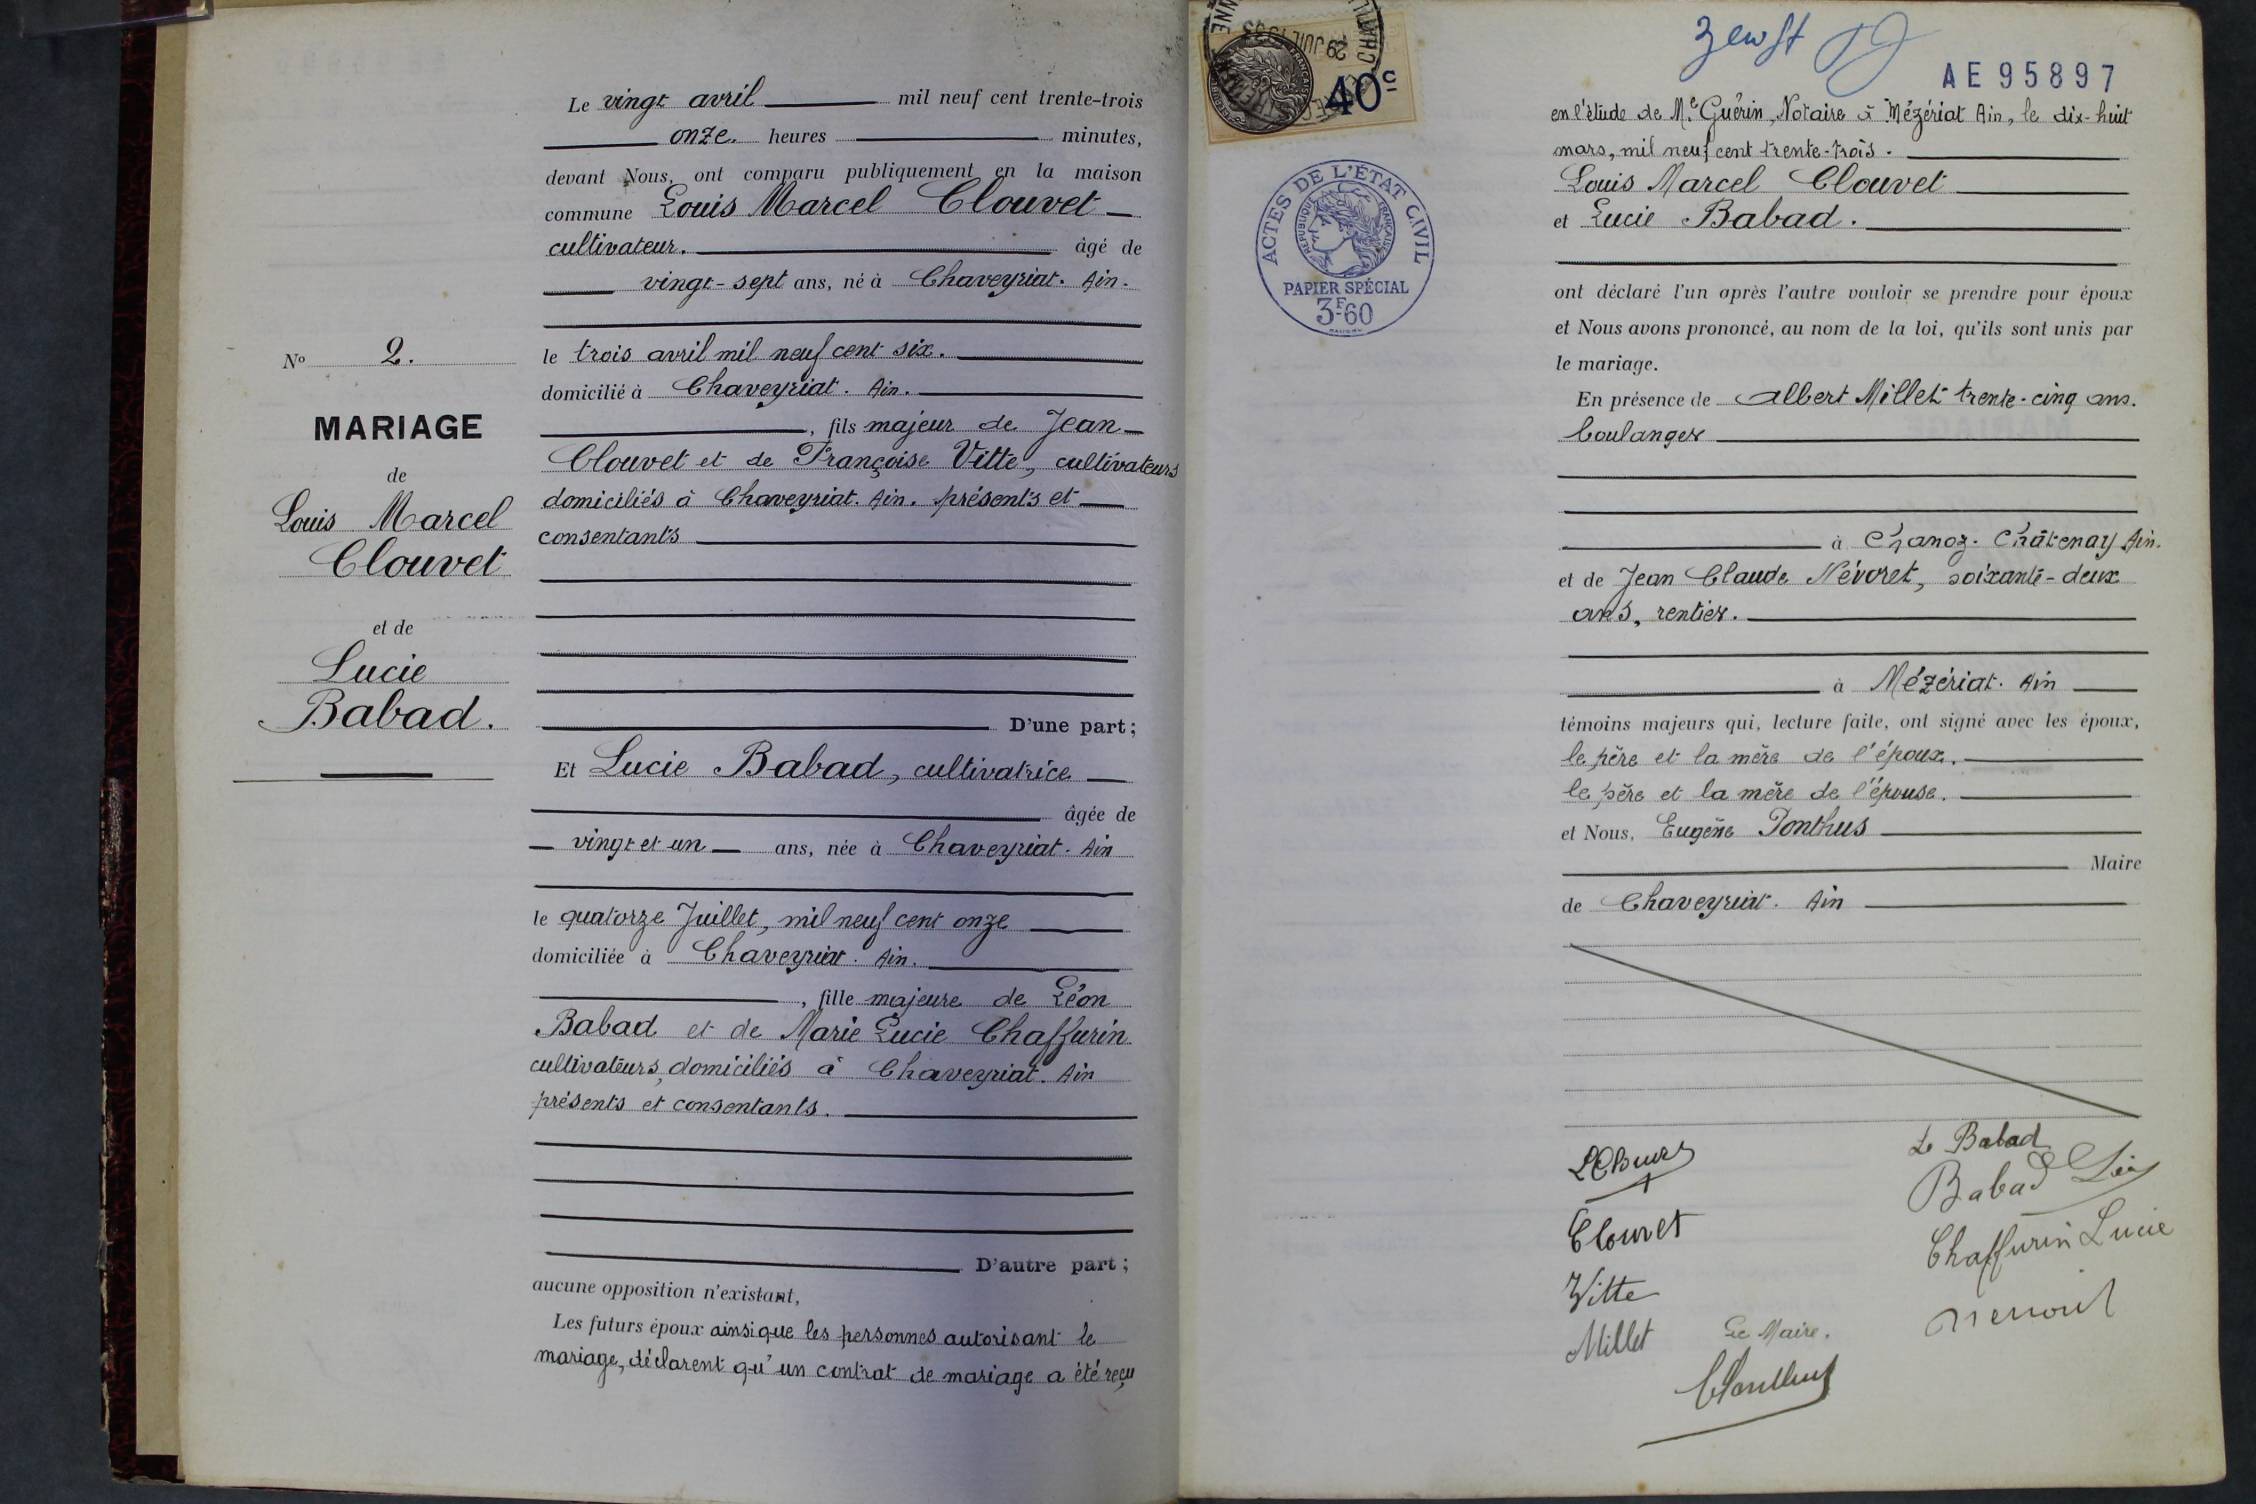 Nº 2.
MARIAGE
de
Louis Marcel
Clouvet
et de
Lucie
Babad.
Le vingt avril mil neuf cent trente-trois
onze heures minutes,
devant Nous, ont comparu publiquement en la maison
commune Louis Marcel Clouvet
cultivateur. âgé de
vingt-sept ans, né à Chaveyriat. Ain.
le trois avril mil neuf cent six.
domicilié à Chaveyriat. Ain.
, fils majeur de Jean
Clouvet et de Françoise Vitte, cultivateurs
domiciliés à Chaveyriat. Ain. présents et
consentants
D'une part;
Et Lucie Babad, cultivatrice
âgée de
vingt et un ans, née à Chaveyriat. Ain
le quatorze Juillet, mil neuf cent onze
domiciliée à Chaveyriat. Ain.
, fille majeure de Léon
Babad et de Marie Lucie Chaffurin
cultivateurs, domiciliés à Chaveyriat. Ain
présents et consentants.
D'autre part;
aucune opposition n'existant,
Les futurs époux ainsi que les personnes autorisant le
mariage, déclarent qu'un contrat de mariage a été reçu
29 JUIL
40c
ACTES DE L'ÉTAT CIVIL
RÉPUBLIQUE FRANÇAISE
PAPIER SPÉCIAL
3F60
AE95897
en l'étude de Me Guérin, Notaire à Mézériat Ain, le dix-huit
mars, mil neuf cent trente-trois.
Louis Marcel Clouvet
et Lucie Babad.
ont déclaré l'un après l'autre vouloir se prendre pour époux
et Nous avons prononcé, au nom de la loi, qu'ils sont unis par
le mariage.
En présence de Albert Millet trente-cinq ans.
boulanger
à Chanoz-Châtenay Ain.
et de Jean Claude Névoret, soixante-deux
ans, rentier.
à Mézériat. Ain
témoins majeurs qui, lecture faite, ont signé avec les époux,
le père et la mère de l'époux.
le père et la mère de l'épouse.
et Nous, Eugène Ponthus
Maire
de Chaveyriat. Ain
L. Babad
Babad Léon
Clouvet
Chaffurin Lucie
Vitte
Millet
Le Maire,